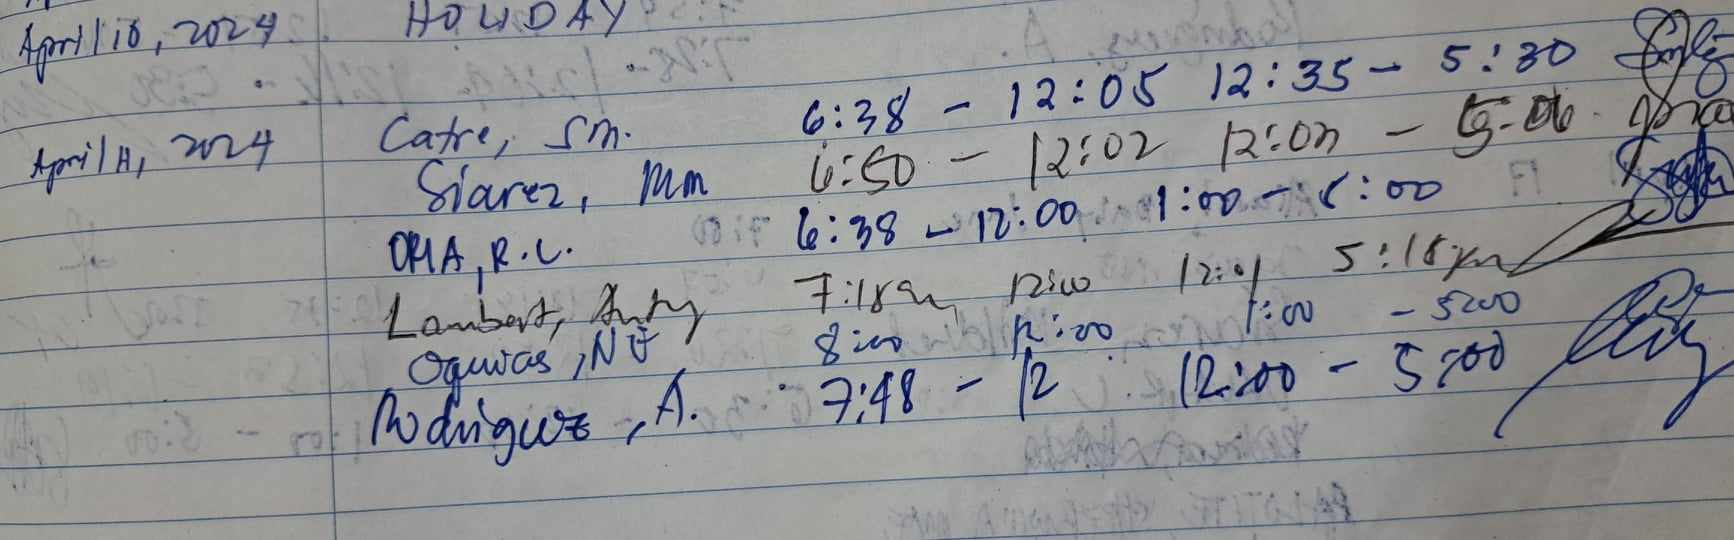 April 10, 2024 HOLIDAY
April 11, 2024 Catre, SM. 6:38 - 12:05 12:35 - 5:30
Siarez, MM 6:50 - 12:02 12:03 - 5:06
OMA, R.C. 6:38 - 12:00 1:00 - 5:00
Lambert, 7:18am 12:00 12:01 5:18pm
Oquias, NE 8:00 12:00 1:00 - 5:00
Rodriguez, A. 7:48 - 12 12:00 - 5:00